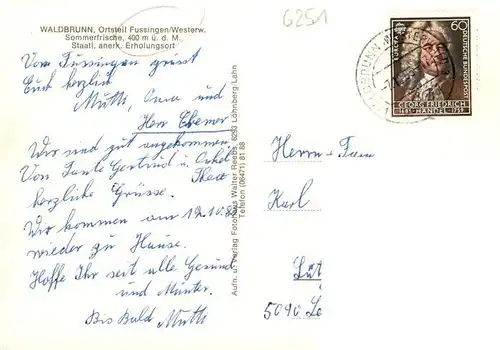 6251
WALDBRUNN, Ortsteil Fussingen/Westerw.
Sommerfrische, 400 m ü. d. M.
Staatl. anerk. Erholungsort
Von Fussingen grüsst
Euch herzlich
Mutti, Oma und
Herr
Wir sind gut angekommen.
Von Tante Gertrud u. Onkel
Theo
herzliche Grüsse.
Wir kommen am 12.10.
wieder zu Hause.
Hoffe Ihr seit alle Gesund
und Munter.
Bis Bald Mutti
Aufn. u. Verlag Fotohaus Walter Reebs, 6293 Löhnberg/Lahn
Telefon (06471) 81 88
WALDBRUNN, WESTERWALD
60
DEUTSCHE BUNDESPOST
EUROPA
GEORG FRIEDRICH
HÄNDEL
1685-1759
Herrn + Frau
Karl
5090